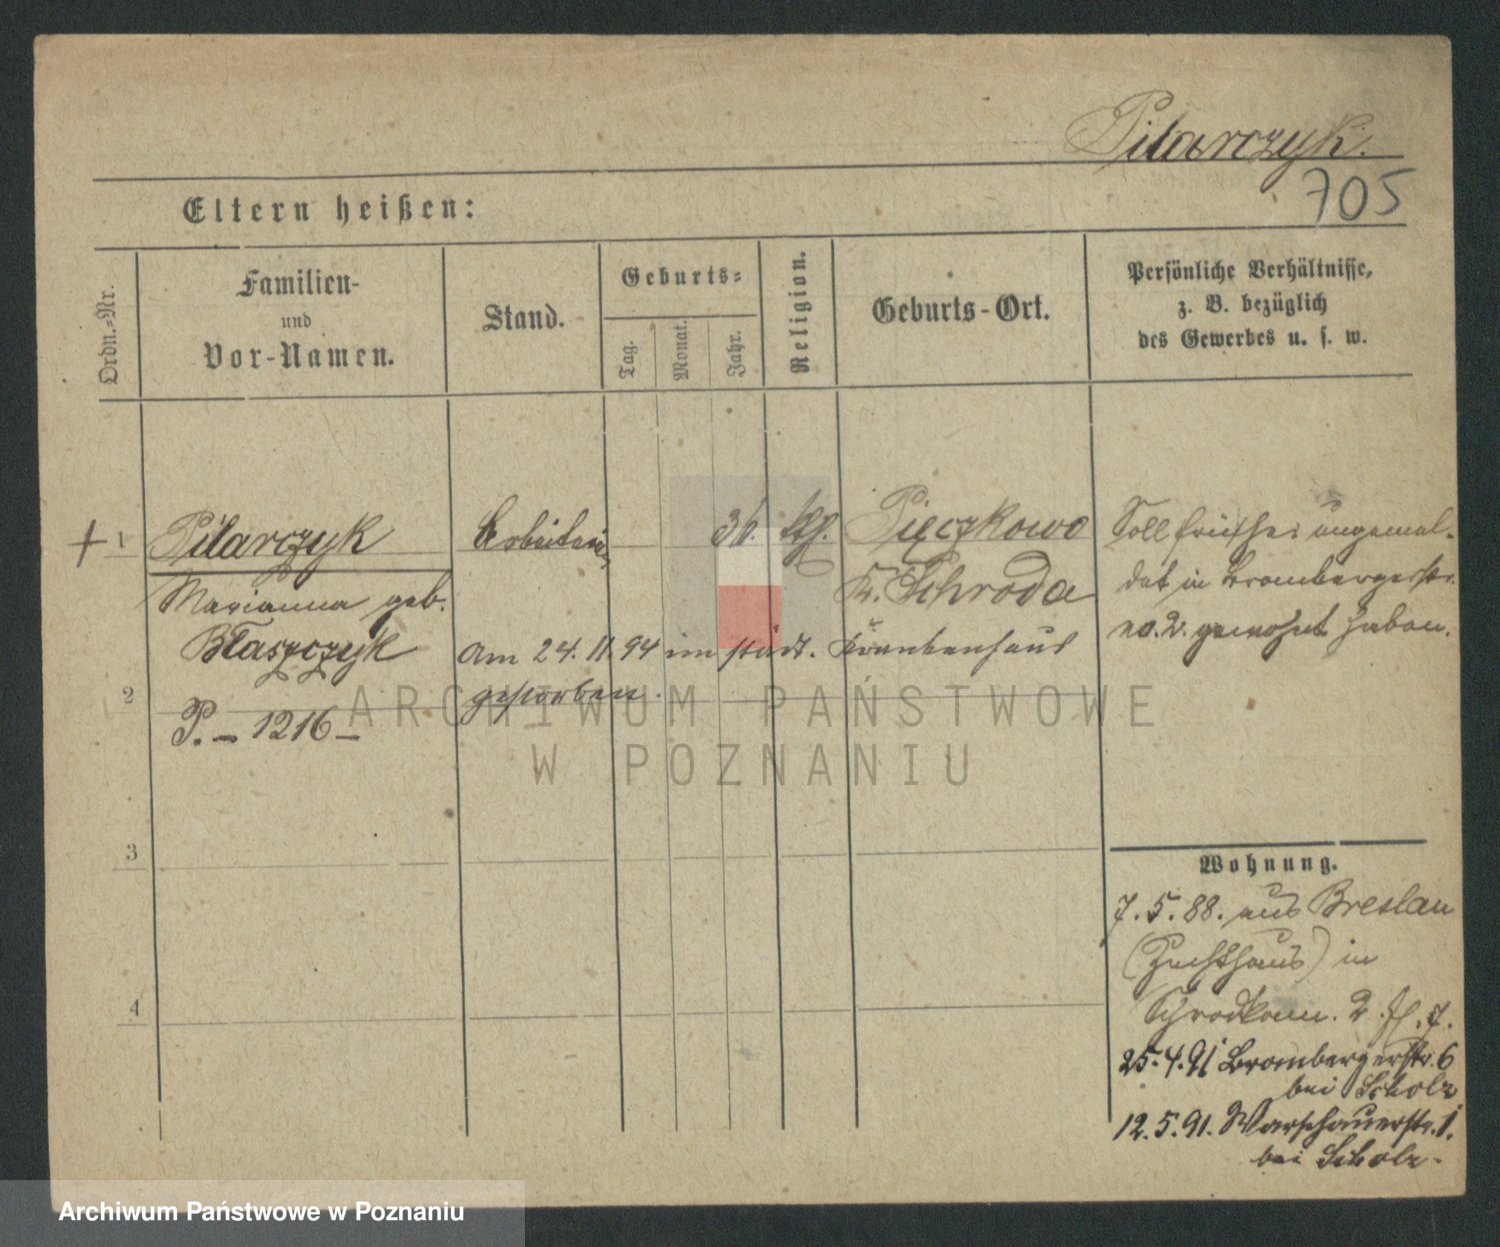 Pilarczyk.
705
Eltern heißen:
Ordn.-Nr.
Familien-
und
Vor-Namen.
Stand.
Geburts-
Tag.
Monat.
Jahr.
Religion.
Geburts-Ort.
Persönliche Verhältnisse,
z. B. bezüglich
des Gewerbes u. s. w.
+ 1 Pilarczyk Arbeiterin 36. kth. Pięczkowo
Marianna geb. Kr. Schroda
Błaszczyk
am 24. 11. 94 im städt. Krankenhaus
gestorben.
2
P. – 1216 –
3
4
Soll früher ungemel-
det in Brombergerstr.
no. 2. gewohnt haben.
Wohnung.
7. 5. 88. aus Breslau
(Zuchthaus) in
2. 7.
25. 4. 91 Brombergerstr. 6
bei Scholz
12. 5. 91. Warschauerstr. 1.
bei Scholz.
ARCHIWUM PAŃSTWOWE
W POZNANIU
Archiwum Państwowe w Poznaniu